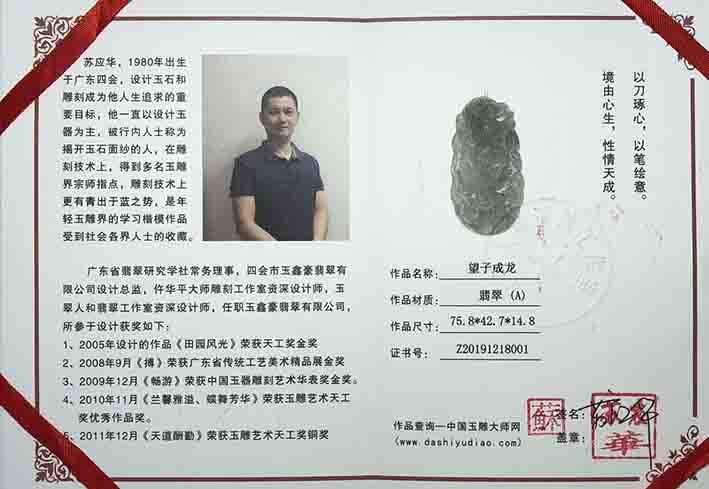 苏应华，1980年出生
于广东四会，设计玉石和
雕刻成为他人生追求的重
要目标，他一直以设计玉
器为主，被行内人士称为
揭开玉石面纱的人，在雕
刻技术上，得到多名玉雕
界宗师指点，雕刻技术上
更有青出于蓝之势，是年
轻玉雕界的学习楷模作品
受到社会各界人士的收藏。
广东省翡翠研究学社常务理事，四会市玉鑫豪翡翠有
限公司设计总监，仵华平大师雕刻工作室资深设计师，玉
翠人和翡翠工作室资深设计师，任职玉鑫豪翡翠有限公司，
所参于设计获奖如下：
1、2005年设计的作品《田园风光》荣获天工奖金奖
2、2008年9月《搏》荣获广东省传统工艺美术精品展金奖
3、2009年12月《畅游》荣获中国玉器雕刻艺术华表奖金奖。
4、2010年11月《兰馨雅溢、蝶舞芳华》荣获玉雕艺术天工
奖优秀作品奖。
5、2011年12月《天道酬勤》荣获玉雕艺术天工奖铜奖
以刀琢心，以笔绘意。
境由心生，性情天成。
作品名称：望子成龙
作品材质：翡翠（A）
作品尺寸：75.8*42.7*14.8
证书号：Z20191218001
作品查询—中国玉雕大师网
（www.dashiyudiao.com）
签名：
盖章：
蘇
華